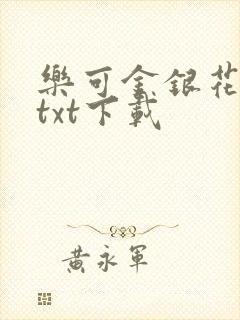 樂可金銀花
txt下載
黃永軍